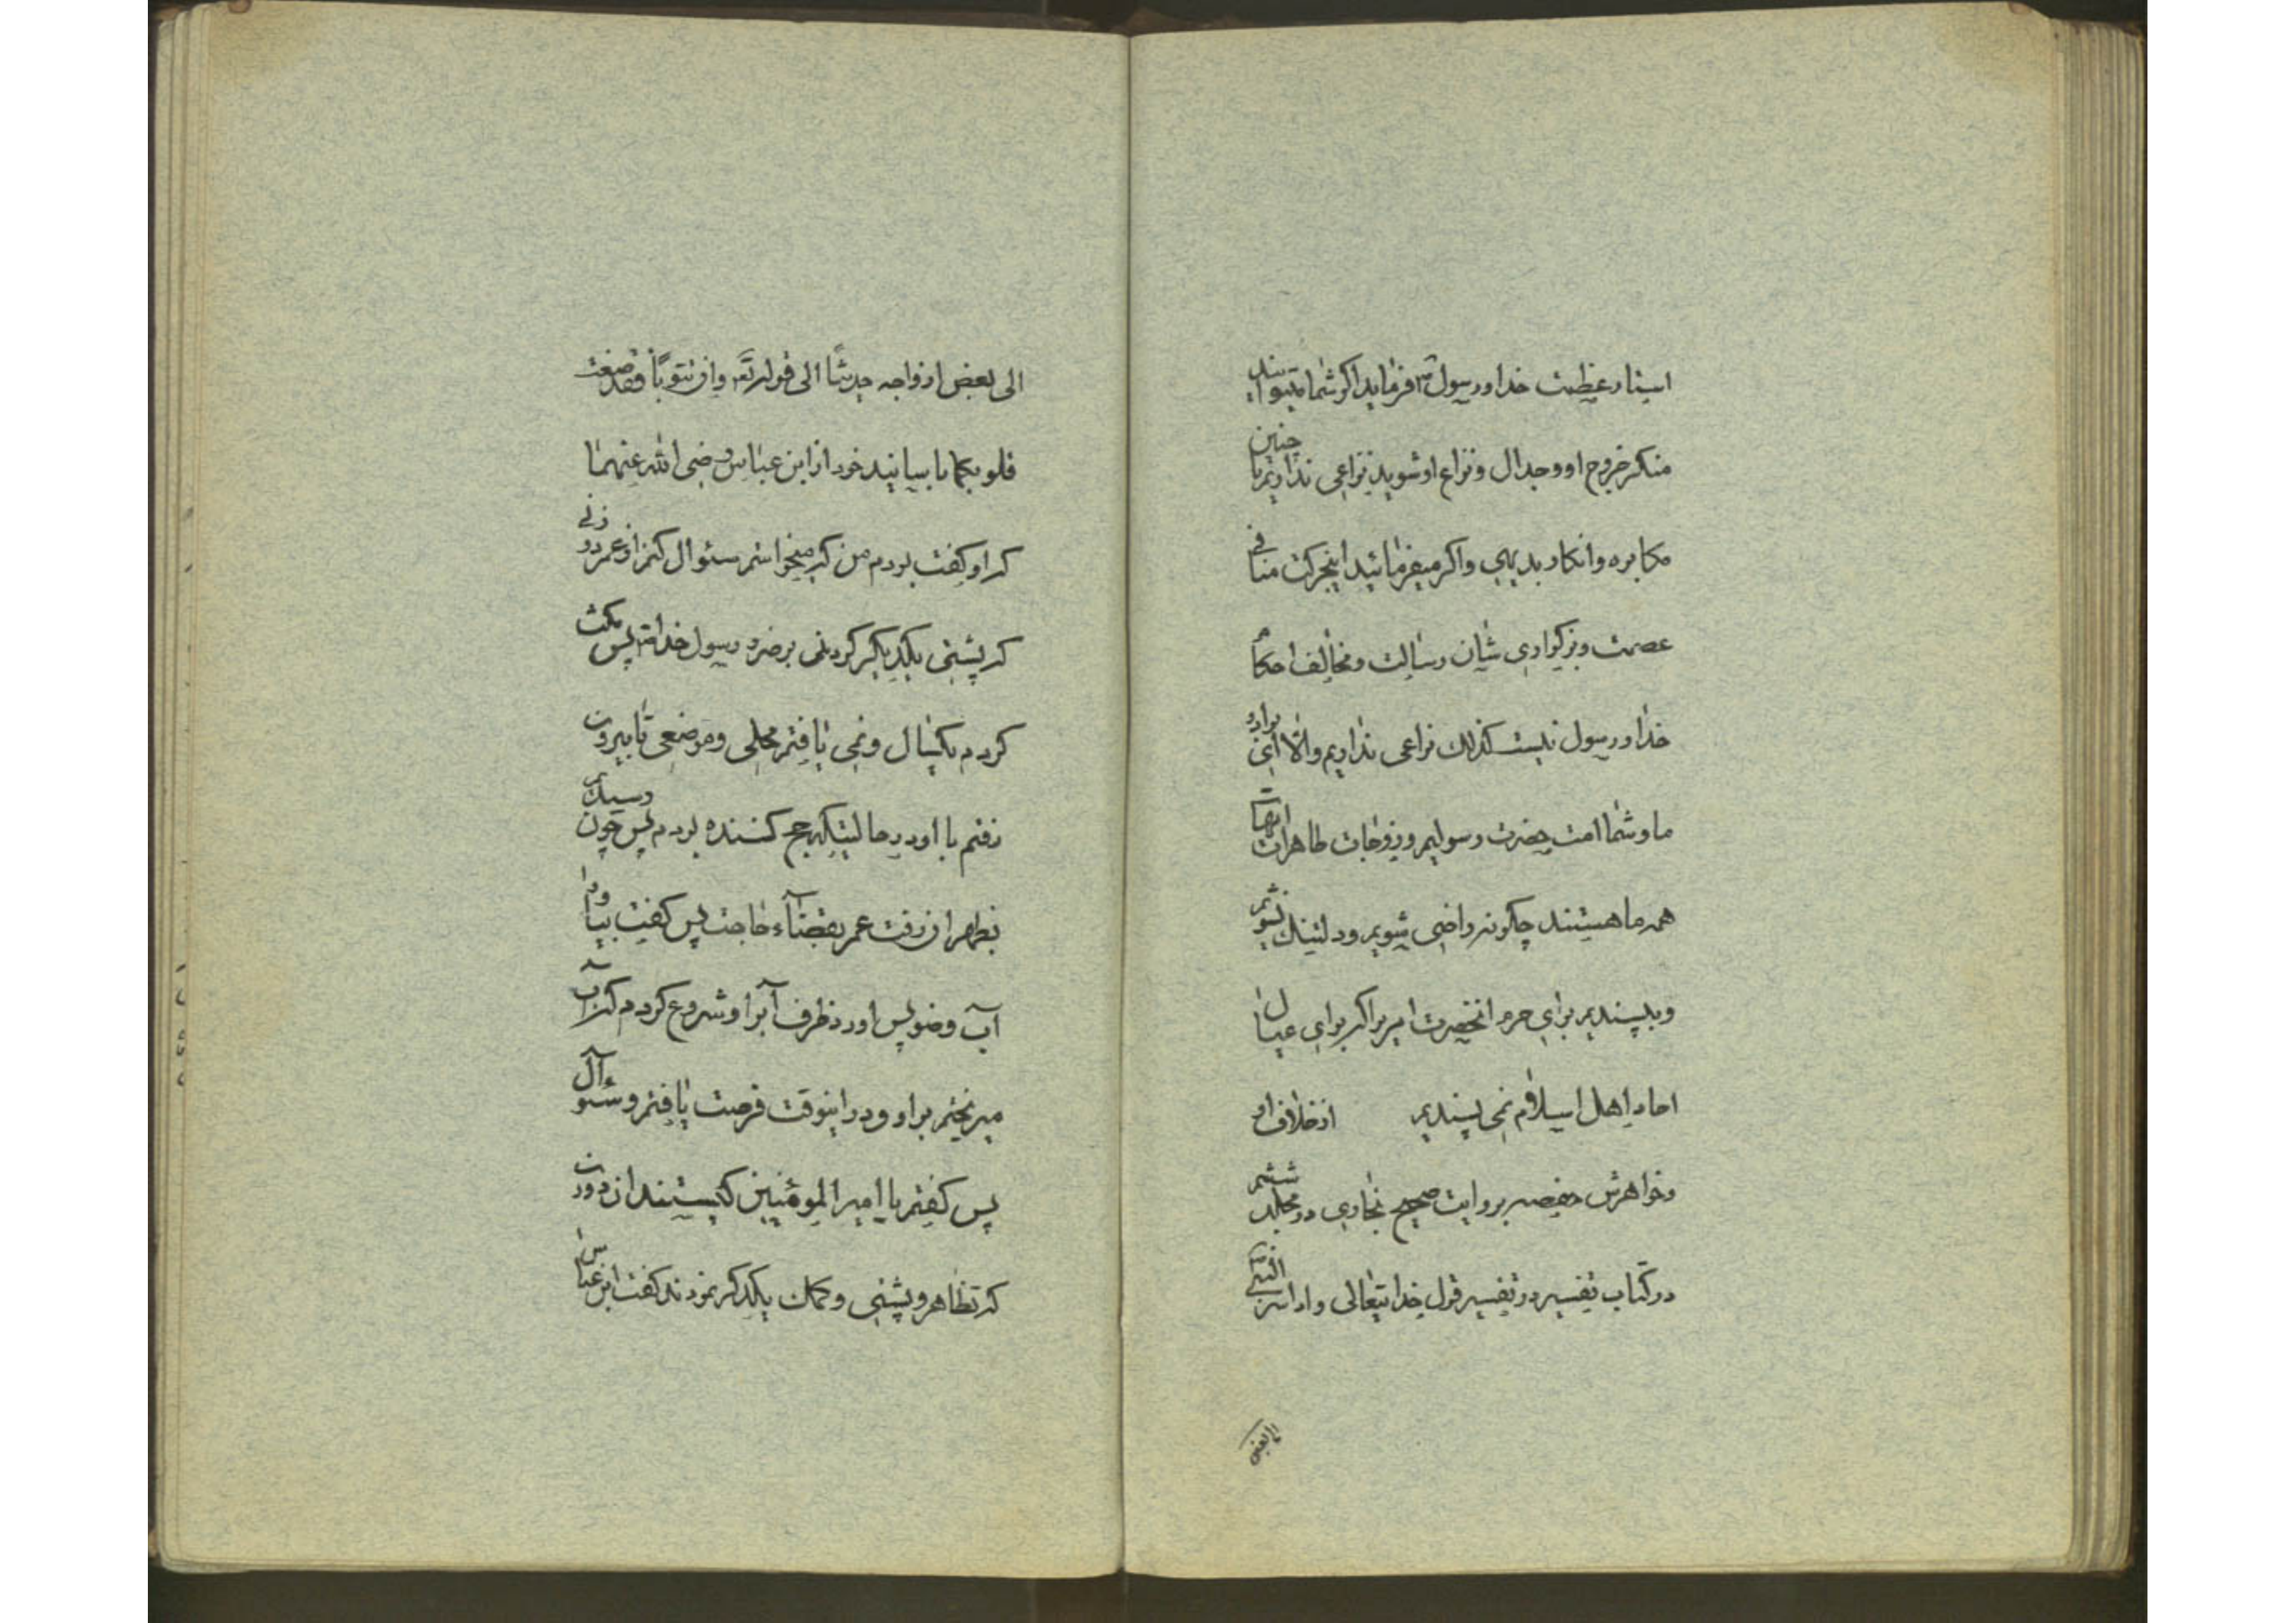 استار عظمت خدا و رسول ص فرماید اگر شما میتوانید
منکر خروج او و جدال و نزاع او شوید نزاعی نداریم با چنین
مکابره و انکار بدیهی و اگر میفرمائید اینحرکت منافی
عصمت و بزرگواری شان رسالت و مخالف احکام
خدا و رسول نیست کذلک نزاعی نداریم والا ای برادر
ما و شما امت حضرت رسولیم و زوجات طاهرات امهات
همه ما هستند چگونه راضی شویم و دلتنک نشویم
و بپسندیم برای حرم انحضرت امریرا که برای عیال
احاد اهل اسلام نمی پسندیم از خلاف او
و خواهرش حفصه بروایت صحیح بخاری در مجلد ششم
در کتاب تفسیر در تفسیر قول خدایتعالی و اذ اسر النبی
الی بعض
الی بعض ازواجه حدیثا الی قوله تع وان تتوبا فقد صغت
قلوبکما با سانید خود از ابن عباس رضی الله عنهما
که او گفت بودم من که میخواستم سئوال کنم از عمر دو زنی
که پشتی یکدیگر کردند بر ضرر رسول خدا ص پس مکث
کردم یکسال و نمی یافتم محلی و موضعی تا بیرون
رفتم با او در حالیتیکه حج کننده بودم پس چون رسیدیم
بظهران رفت عمر بقضاء حاجت پس گفت بیاور
آب وضو پس اوردم ظرف آبرا و شروع کردم که آب
میریختم بر او و در اینوقت فرصت یافتم و سئوآل
پس گفتم یا امیر المومنین کیستند ان دو زن
که تظاهر و پشتی و کمک یکدیگر نمودند گفت ابن عباس